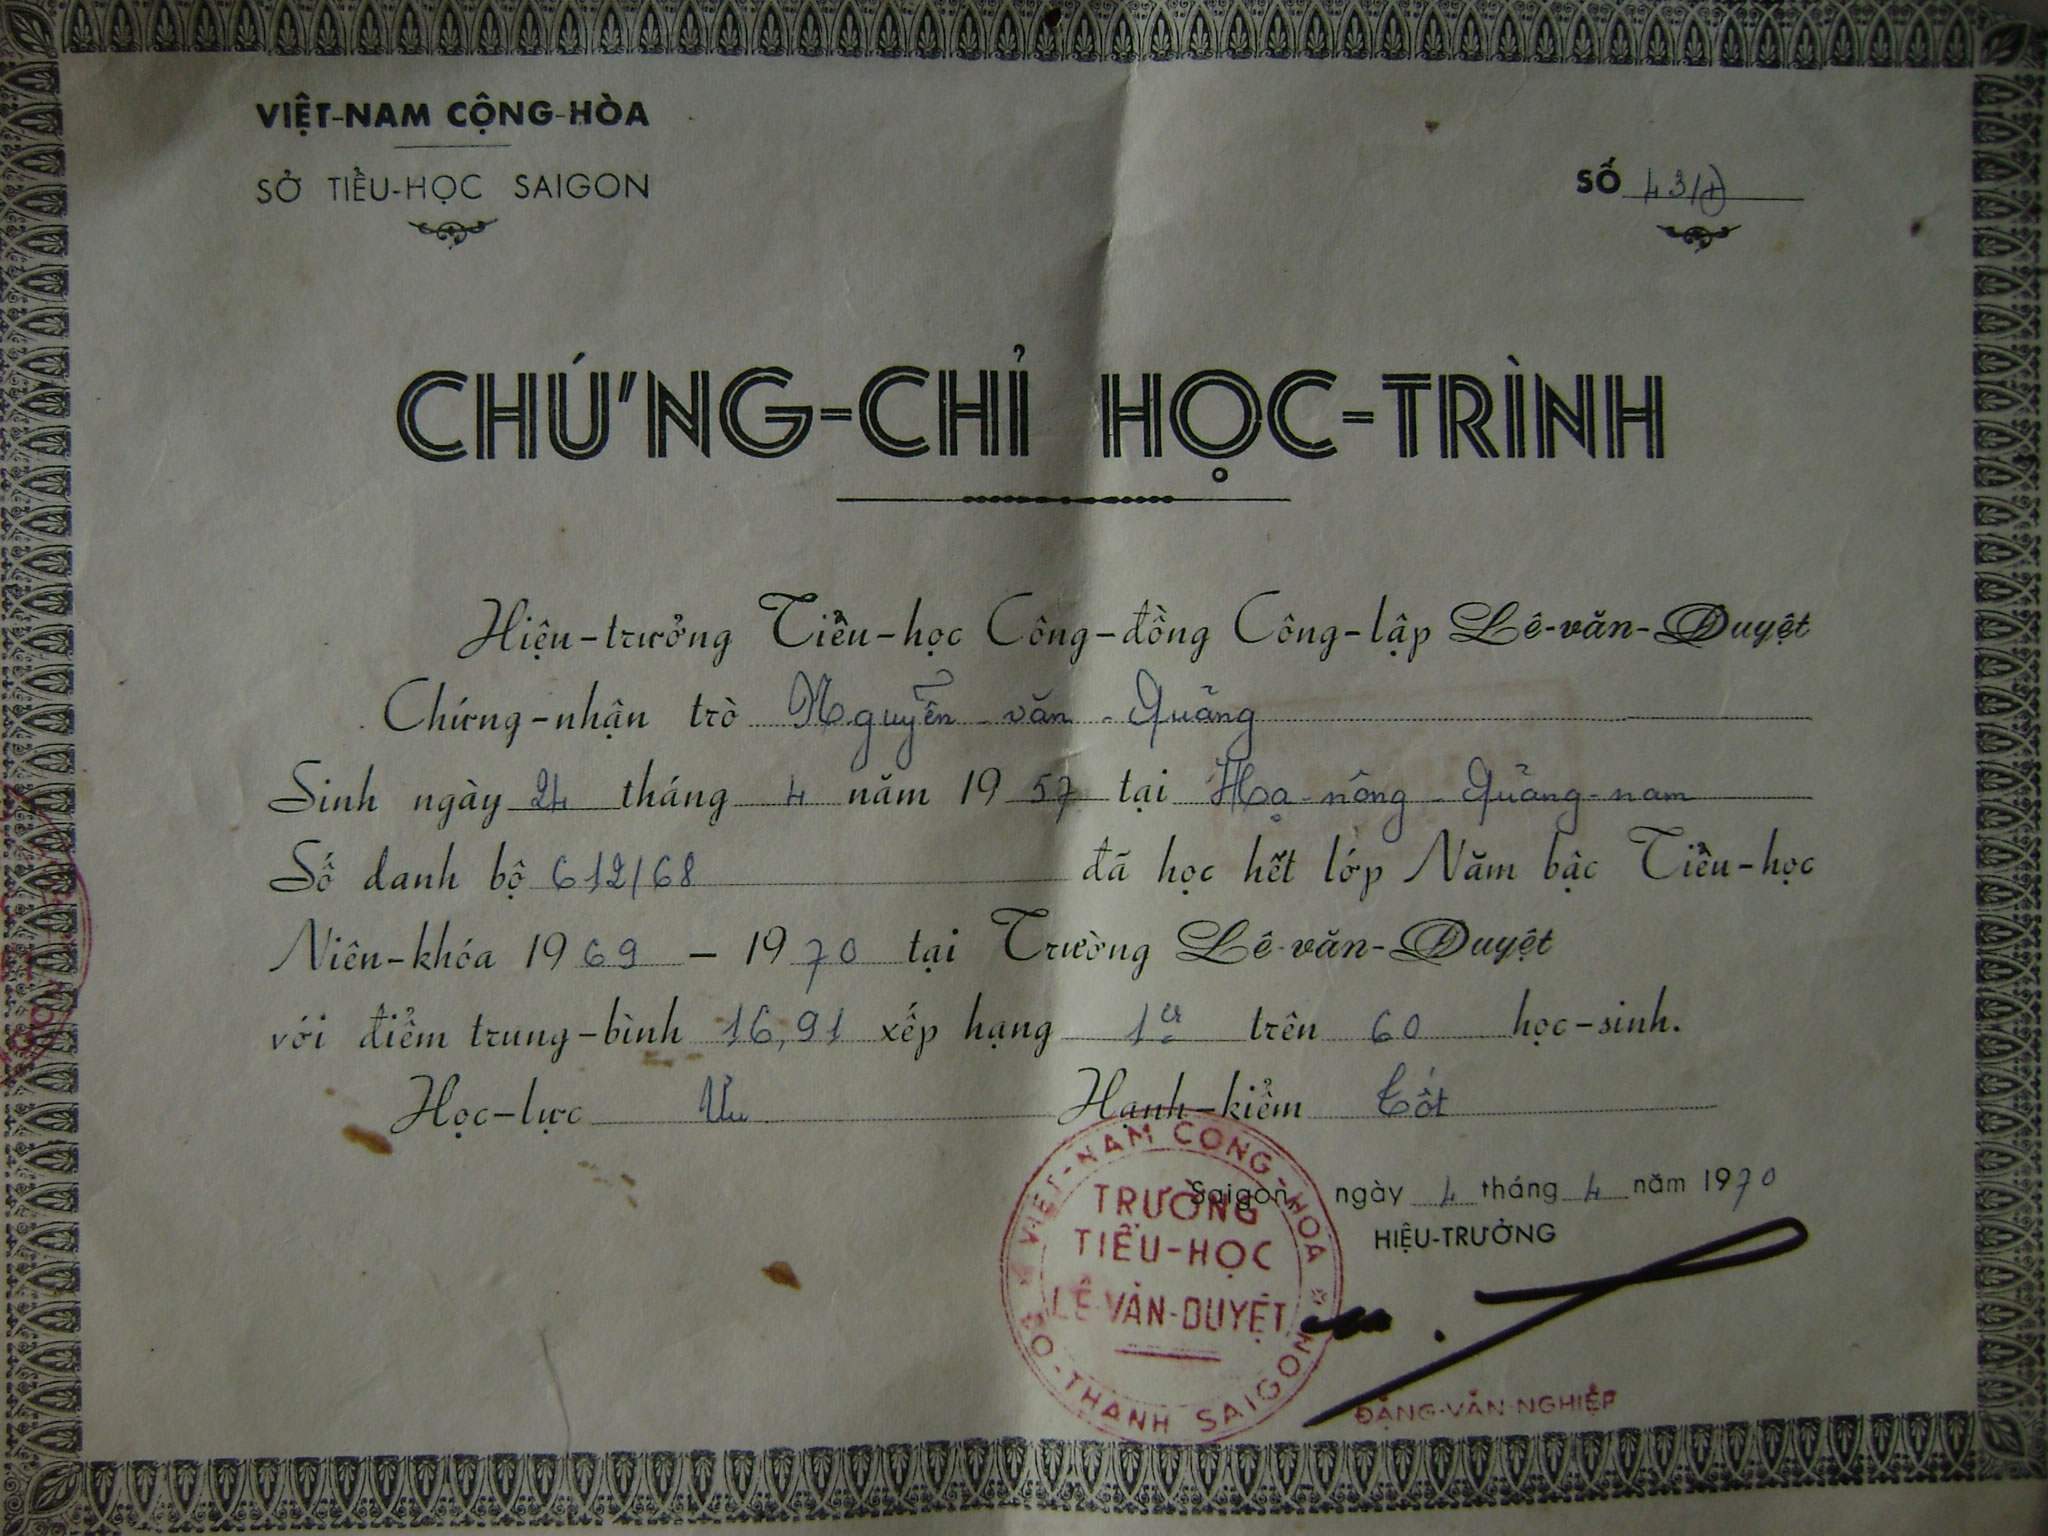 VIỆT-NAM CỘNG-HÒA
SỞ TIỂU-HỌC SAIGON
SỐ 43/
CHỨNG-CHỈ HỌC-TRÌNH
Hiệu-trưởng Tiểu-học Công-đồng Công-lập Lê-văn-Duyệt
Chứng-nhận trò Nguyễn-văn-Quảng
Sinh ngày 24 tháng 4 năm 1957 tại Hạ-nông-Quảng-nam
Số danh bộ 612/68 đã học hết lớp Năm bậc Tiểu-học
Niên-khóa 1969 – 1970 tại Trường Lê-văn-Duyệt
với điểm trung-bình 16,91 xếp hạng 1er trên 60 học-sinh.
Học-lực Ưu Hạnh-kiểm Tốt
Saigon, ngày 4 tháng 4 năm 1970
HIỆU-TRƯỞNG
VIỆT-NAM CỘNG-HÒA
TRƯỜNG
TIỂU-HỌC
LÊ-VĂN-DUYỆT
ĐÔ-THÀNH SAIGON
ĐẶNG-VĂN-NGHIỆP